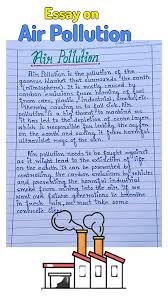 Essay on
Air Pollution
Air Pollution
Air Pollution is the pollution of the
gaseous blanket that surrounds the earth
(atmosphere). It is mostly caused by
carbon emissions from burning of fuel
from cars, planes, industrial smoke etc.
thereby causing us to fall sick. Air
pollution is a big threat to humanity.
It has led to the depletion of ozone layer
which is responsible for saving
the earth and saving it from harmful
ultraviolet rays of the sun.
Air pollution needs to be fought against
as it might lead to the extinction of life
on the earth. It can be prevented by
controlling the carbon emissions by vehicles
and preventing the harmful industrial
smoke from mixing into the air. If we
want our future generations to breathe
in fresh air, we must take some
concrete steps.